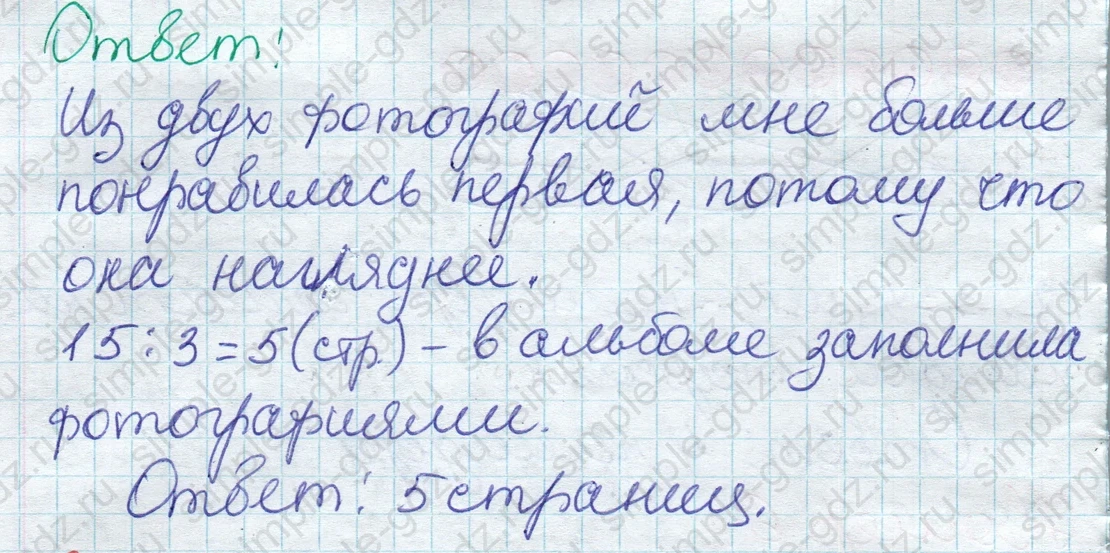 Ответ:
Из двух фотографий мне больше
понравилась первая, потому что
она нагляднее.
15:3=5(стр.) – в альбоме заполнила
фотографиями.
Ответ: 5 страниц.
simple-gdz.ru